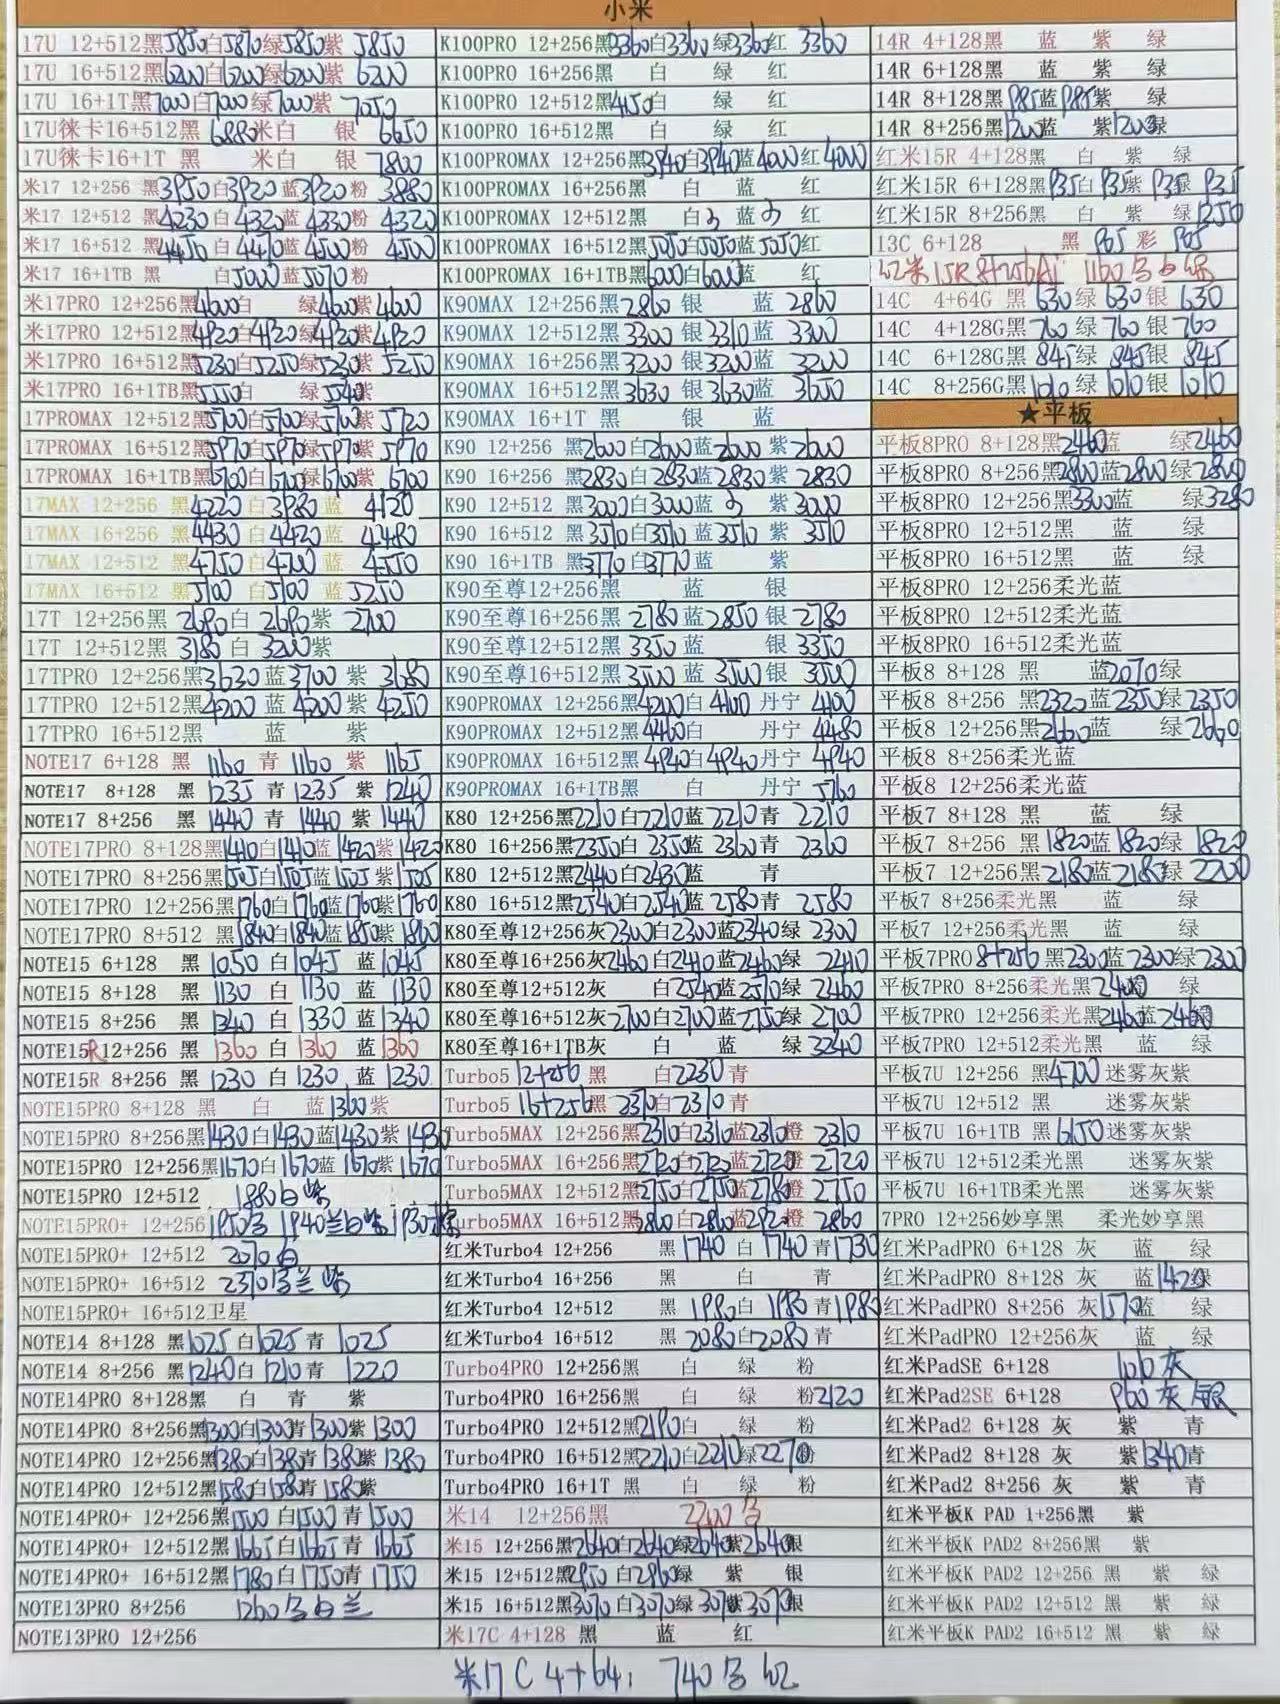 小米
17U 12+512黑5850白5870绿5850紫 5850
17U 16+512黑6200白6200绿6200紫 6200
17U 16+1T黑7000白7000绿7000紫 7050
17U徕卡16+512黑 6880米白 银 6650
17U徕卡16+1T 黑 米白 银 7800
米17 12+256 黑3950白3920蓝3920粉 3880
米17 12+512 黑4230白4320蓝4330粉 4320
米17 16+512 黑4450白4410蓝4500粉 4500
米17 16+1TB 黑 白5000蓝5070粉
米17PRO 12+256黑4600白 绿4600紫4600
米17PRO 12+512黑4920白4920绿4920紫4920
米17PRO 16+512黑5230白5250绿5230紫5250
米17PRO 16+1TB黑5550白 绿5540紫
17PROMAX 12+512黑5700白5700绿5700紫5720
17PROMAX 16+512黑5970白5970绿5970紫5970
17PROMAX 16+1TB黑6700白6700绿6700紫6700
17MAX 12+256 黑4220白3980蓝 4120
17MAX 16+256 黑4430白4420蓝 4480
17MAX 12+512 黑4750白4700蓝 4550
17MAX 16+512 黑5100白5100蓝 5250
17T 12+256黑 2690白 2690紫 2700
17T 12+512黑 3180白 3200紫
17TPRO 12+256黑3630蓝3700 紫 3680
17TPRO 12+512黑4200蓝 4200紫 4250
17TPRO 16+512黑 蓝 紫
NOTE17 6+128 黑 1160 青 1160 紫 1165
NOTE17 8+128 黑 1235 青 1235 紫 1240
NOTE17 8+256 黑 1440 青 1440 紫 1440
NOTE17PRO 8+128黑1410白1410蓝1420紫1420
NOTE17PRO 8+256黑1505白1505蓝1505紫1505
NOTE17PRO 12+256黑1760白1760蓝1760紫1760
NOTE17PRO 8+512 黑1840白1840蓝1850紫1860
NOTE15 6+128 黑 1050 白 1045 蓝 1045
NOTE15 8+128 黑 1130 白 1130 蓝 1130
NOTE15 8+256 黑 1340 白 1330 蓝 1340
NOTE15R12+256 黑 1360 白 1360 蓝 1360
NOTE15R 8+256 黑 1230 白 1230 蓝 1230
NOTE15PRO 8+128 黑 白 蓝1360紫
NOTE15PRO 8+256黑1430白1430蓝1430紫1430
NOTE15PRO 12+256黑1670白1670蓝1670紫1670
NOTE15PRO 12+512 1880白紫
NOTE15PRO+ 12+256 1950 1940兰白紫 1930
NOTE15PRO+ 12+512 2070白
NOTE15PRO+ 16+512 2310 兰紫
NOTE15PRO+ 16+512卫星
NOTE14 8+128 黑1025白1025青 1025
NOTE14 8+256 黑1240白1210青 1220
NOTE14PRO 8+128黑 白 青 紫
NOTE14PRO 8+256黑1300白1300青1300紫1300
NOTE14PRO 12+256黑1380白1380青1380紫1380
NOTE14PRO 12+512黑1580白1580青1580紫
NOTE14PRO+ 12+256黑1500白1500青1500
NOTE14PRO+ 12+512黑1665白1665青1665
NOTE14PRO+ 16+512黑1780白1750青1750
NOTE13PRO 8+256 1260 白兰
NOTE13PRO 12+256
K100PRO 12+256黑3360白3360绿3360红 3360
K100PRO 16+256黑 白 绿 红
K100PRO 12+512黑4150白 绿 红
K100PRO 16+512黑 白 绿 红
K100PROMAX 12+256黑3940白3940蓝4000红4000
K100PROMAX 16+256黑 白 蓝 红
K100PROMAX 12+512黑 白 蓝 红
K100PROMAX 16+512黑5050白5050蓝5050红
K100PROMAX 16+1TB黑6000白6000蓝 红
K90MAX 12+256黑2860 银 蓝 2860
K90MAX 12+512黑3300 银3310蓝 3300
K90MAX 16+256黑3200 银3200蓝 3200
K90MAX 16+512黑3630 银3630蓝 3650
K90MAX 16+1T 黑 银 蓝
K90 12+256 黑2600白2600蓝2600 紫2600
K90 16+256 黑2830白2830蓝2830紫 2830
K90 12+512 黑3000白3000蓝 紫 3000
K90 16+512 黑3510白3510蓝3510紫 3510
K90 16+1TB 黑3770白3770蓝 紫
K90至尊12+256黑 蓝 银
K90至尊16+256黑 2780蓝2850 银 2780
K90至尊12+512黑 3350 蓝 银 3350
K90至尊16+512黑3500 蓝3500 银 3500
K90PROMAX 12+256黑4200白 4100 丹宁 4100
K90PROMAX 12+512黑4460白 丹宁 4480
K90PROMAX 16+512黑4940白4940丹宁 4940
K90PROMAX 16+1TB黑 白 丹宁 5760
K80 12+256黑2210白2210蓝2210青 2210
K80 16+256黑2350白2350蓝2360青 2360
K80 12+512黑2440白2430蓝 青
K80 16+512黑2540白2540蓝2580青 2580
K80至尊12+256灰2300白2300蓝2340绿 2300
K80至尊16+256灰2460白2410蓝2460绿 2410
K80至尊12+512灰 白2540蓝2510绿 2460
K80至尊16+512灰2700白2700蓝2750绿 2700
K80至尊16+1TB灰 白 蓝 绿 3240
Turbo5 12+256 黑 白2230青
Turbo5 16+256黑 2310白2310青
Turbo5MAX 12+256黑2310白2310蓝2310橙 2310
Turbo5MAX 16+256黑2720白2720蓝2720橙 2720
Turbo5MAX 12+512黑2750白2750蓝2780橙 2750
Turbo5MAX 16+512黑2860白2860蓝2920橙 2860
红米Turbo4 12+256 黑1740 白 1740青1730
红米Turbo4 16+256 黑 白 青
红米Turbo4 12+512 黑 1980白 1980青1980
红米Turbo4 16+512 黑 2080白2080青
Turbo4PRO 12+256黑 白 绿 粉
Turbo4PRO 16+256黑 白 绿 粉2120
Turbo4PRO 12+512黑2190白 绿 粉
Turbo4PRO 16+512黑2210白2210绿2270粉
Turbo4PRO 16+1T 黑 白 绿 粉
米14 12+256黑 2200
米15 12+256黑2640白2640绿2640紫2640银
米15 12+512黑2950 白2960绿 紫 银
米15 16+512黑3070白3070绿3070紫3070银
米17C 4+128 黑 蓝 红
14R 4+128黑 蓝 紫 绿
14R 6+128黑 蓝 紫 绿
14R 8+128黑985蓝985紫 绿
14R 8+256黑1200蓝 紫1200绿
红米15R 4+128黑 白 紫 绿
红米15R 6+128黑935白935紫935绿 935
红米15R 8+256黑 白 紫 绿1250
13C 6+128 黑 905 彩 905
红米15R 8+256Ai 1160 白绿
14C 4+64G 黑 630绿 630银 630
14C 4+128G黑 760 绿 760银 760
14C 6+128G黑 845绿 845银 845
14C 8+256G黑1010绿1010银 1010
★平板
平板8PRO 8+128黑2460蓝 绿2460
平板8PRO 8+256黑2800蓝2800绿2800
平板8PRO 12+256黑3300蓝 绿3280
平板8PRO 12+512黑 蓝 绿
平板8PRO 16+512黑 蓝 绿
平板8PRO 12+256柔光蓝
平板8PRO 12+512柔光蓝
平板8PRO 16+512柔光蓝
平板8 8+128 黑 蓝2070绿
平板8 8+256 黑2320蓝2350绿2350
平板8 12+256黑2660蓝 绿2660
平板8 8+256柔光蓝
平板8 12+256柔光蓝
平板7 8+128 黑 蓝 绿
平板7 8+256 黑 1820蓝1820绿 1820
平板7 12+256黑2180蓝2185绿 2200
平板7 8+256柔光黑 蓝 绿
平板7 12+256柔光黑 蓝 绿
平板7PRO 8+256 黑2300蓝2300绿2300
平板7PRO 8+256柔光黑2400蓝 绿
平板7PRO 12+256柔光黑2460蓝2460绿
平板7PRO 12+512柔光黑 蓝 绿
平板7U 12+256 黑4700 迷雾灰紫
平板7U 12+512 黑 迷雾灰紫
平板7U 16+1TB 黑6150迷雾灰紫
平板7U 12+512柔光黑 迷雾灰紫
平板7U 16+1TB柔光黑 迷雾灰紫
7PRO 12+256妙享黑 柔光妙享黑
红米PadPRO 6+128 灰 蓝 绿
红米PadPRO 8+128 灰 蓝1420绿
红米PadPRO 8+256 灰1570蓝 绿
红米PadPRO 12+256灰 蓝 绿
红米PadSE 6+128 1010 灰
红米Pad2SE 6+128 960 灰 银
红米Pad2 6+128 灰 紫 青
红米Pad2 8+128 灰 紫1340青
红米Pad2 8+256 灰 紫 青
红米平板K PAD 1+256黑 紫
红米平板K PAD2 8+256黑 紫
红米平板K PAD2 12+256 黑 紫 绿
红米平板K PAD2 12+512 黑 紫 绿
红米平板K PAD2 16+512 黑 紫 绿
米17C 4+64: 740 红